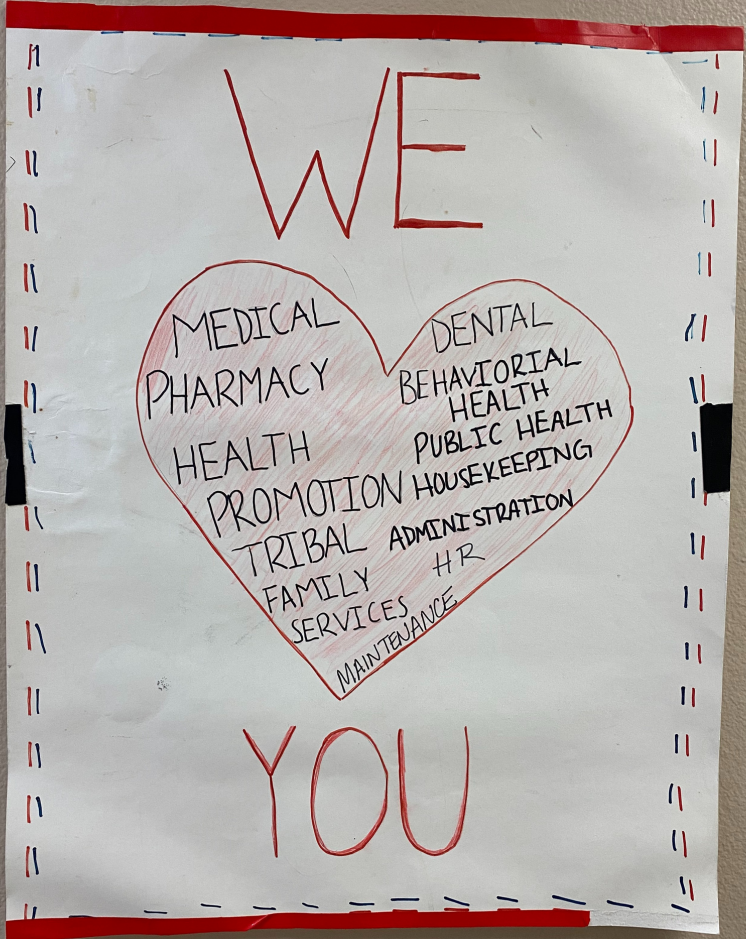 WE
MEDICAL
PHARMACY
HEALTH
PROMOTION
TRIBAL
FAMILY
SERVICES
DENTAL
BEHAVIORIAL
HEALTH
PUBLIC HEALTH
HOUSEKEEPING
ADMINISTRATION
HR
MAINTENANCE
YOU